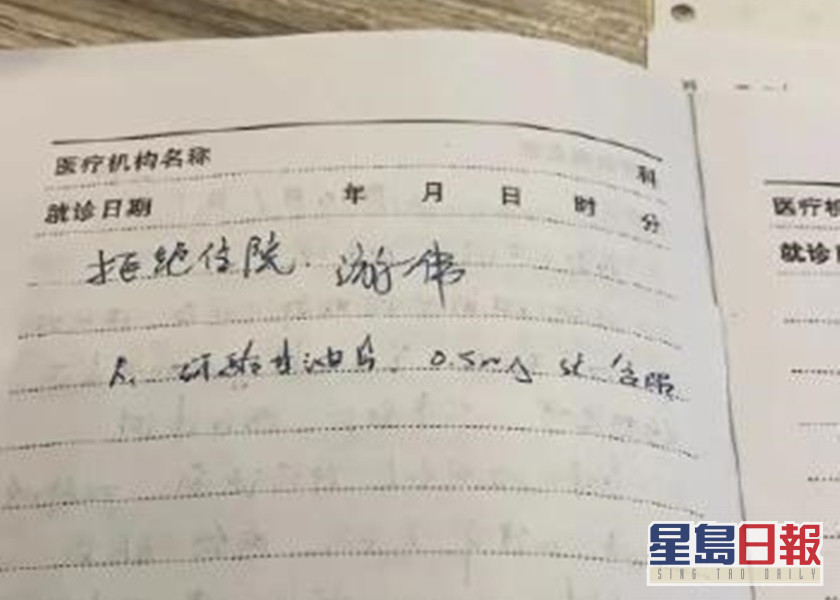 医疗机构名称 科
就诊日期 年 月 日 时 分
拒绝住院. 游伟
R. 硝酸甘油片. 0.5mg st 含服
医疗机
就诊日
星島日報
SING TAO DAILY